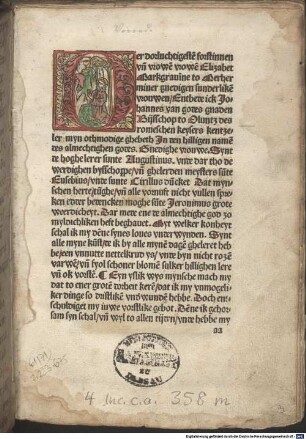 Der dorluchtigeste forstinnen
vn̄ vrowē vrowē Elizabet
Markgrauīne to Merher
miner gnedigen sunderlikē
vrouwen/ Entbete ick Jo-
hannes van gotes gnaden
Bisschoop to Oluntz des
romeschen keysers kentze-
ler myn othmodige ghebeth Jn ten hilligen namē
des almechtighen gotes. Gnedighe vrouwe. Synt
te hoghe lerer sunte Augustinus. vnde dar tho de
werdighen bysschoppe/ vn̄ ghelerden meysters sūte
Eusebius/vnde sunte Cirillus dūcket. Dat myn-
schen herte/tūghe/vn̄ alle vornuft nicht vullen spre-
ken edder betencken moghe sūte Jeronimus grote
weerdicheyt. Dar mete ene te almechtighe god so
mylochliken heft beghauet. Myt welker konheyt
schal ik my dēne synes loues vnter wynden. Synt
alle myne kūste/te ik by alle mynē dagē ghelert heb
be/een vnnutte nettelkrud ys/ vnte byn nicht rozē
var wē/vn̄ schol schoner blomē sulker hillighen lere
vn̄ ok vorstē. Eyn yslik wys mynsche mach my
dat to ener grotē torheit kerē/dat ik my vnmogeli-
ker dinge so dūstlikē vnd wundē hebbe. Doch ent-
schuldiget my iuwe vorstlike gebot. Dēne ik gehor-
sam syn schal/vn̄ wyl to allen tijten/vnte hebbe my
aa
ZU
PASSAU
4 Inc. c. a. 358 m